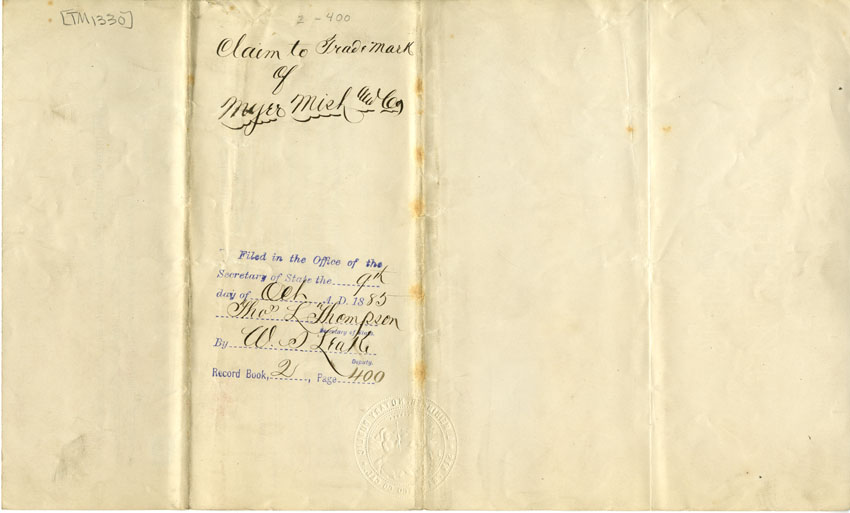 [TM1330]
2-400
Claim to Trade Mark
of
Myer Mish and Co
Filed in the Office of the
Secretary of State the 9th
day of Oct A.D. 1885
Thos L Thompson
Secretary of State.
By W. S Leake
Deputy.
Record Book, 2, Page 400